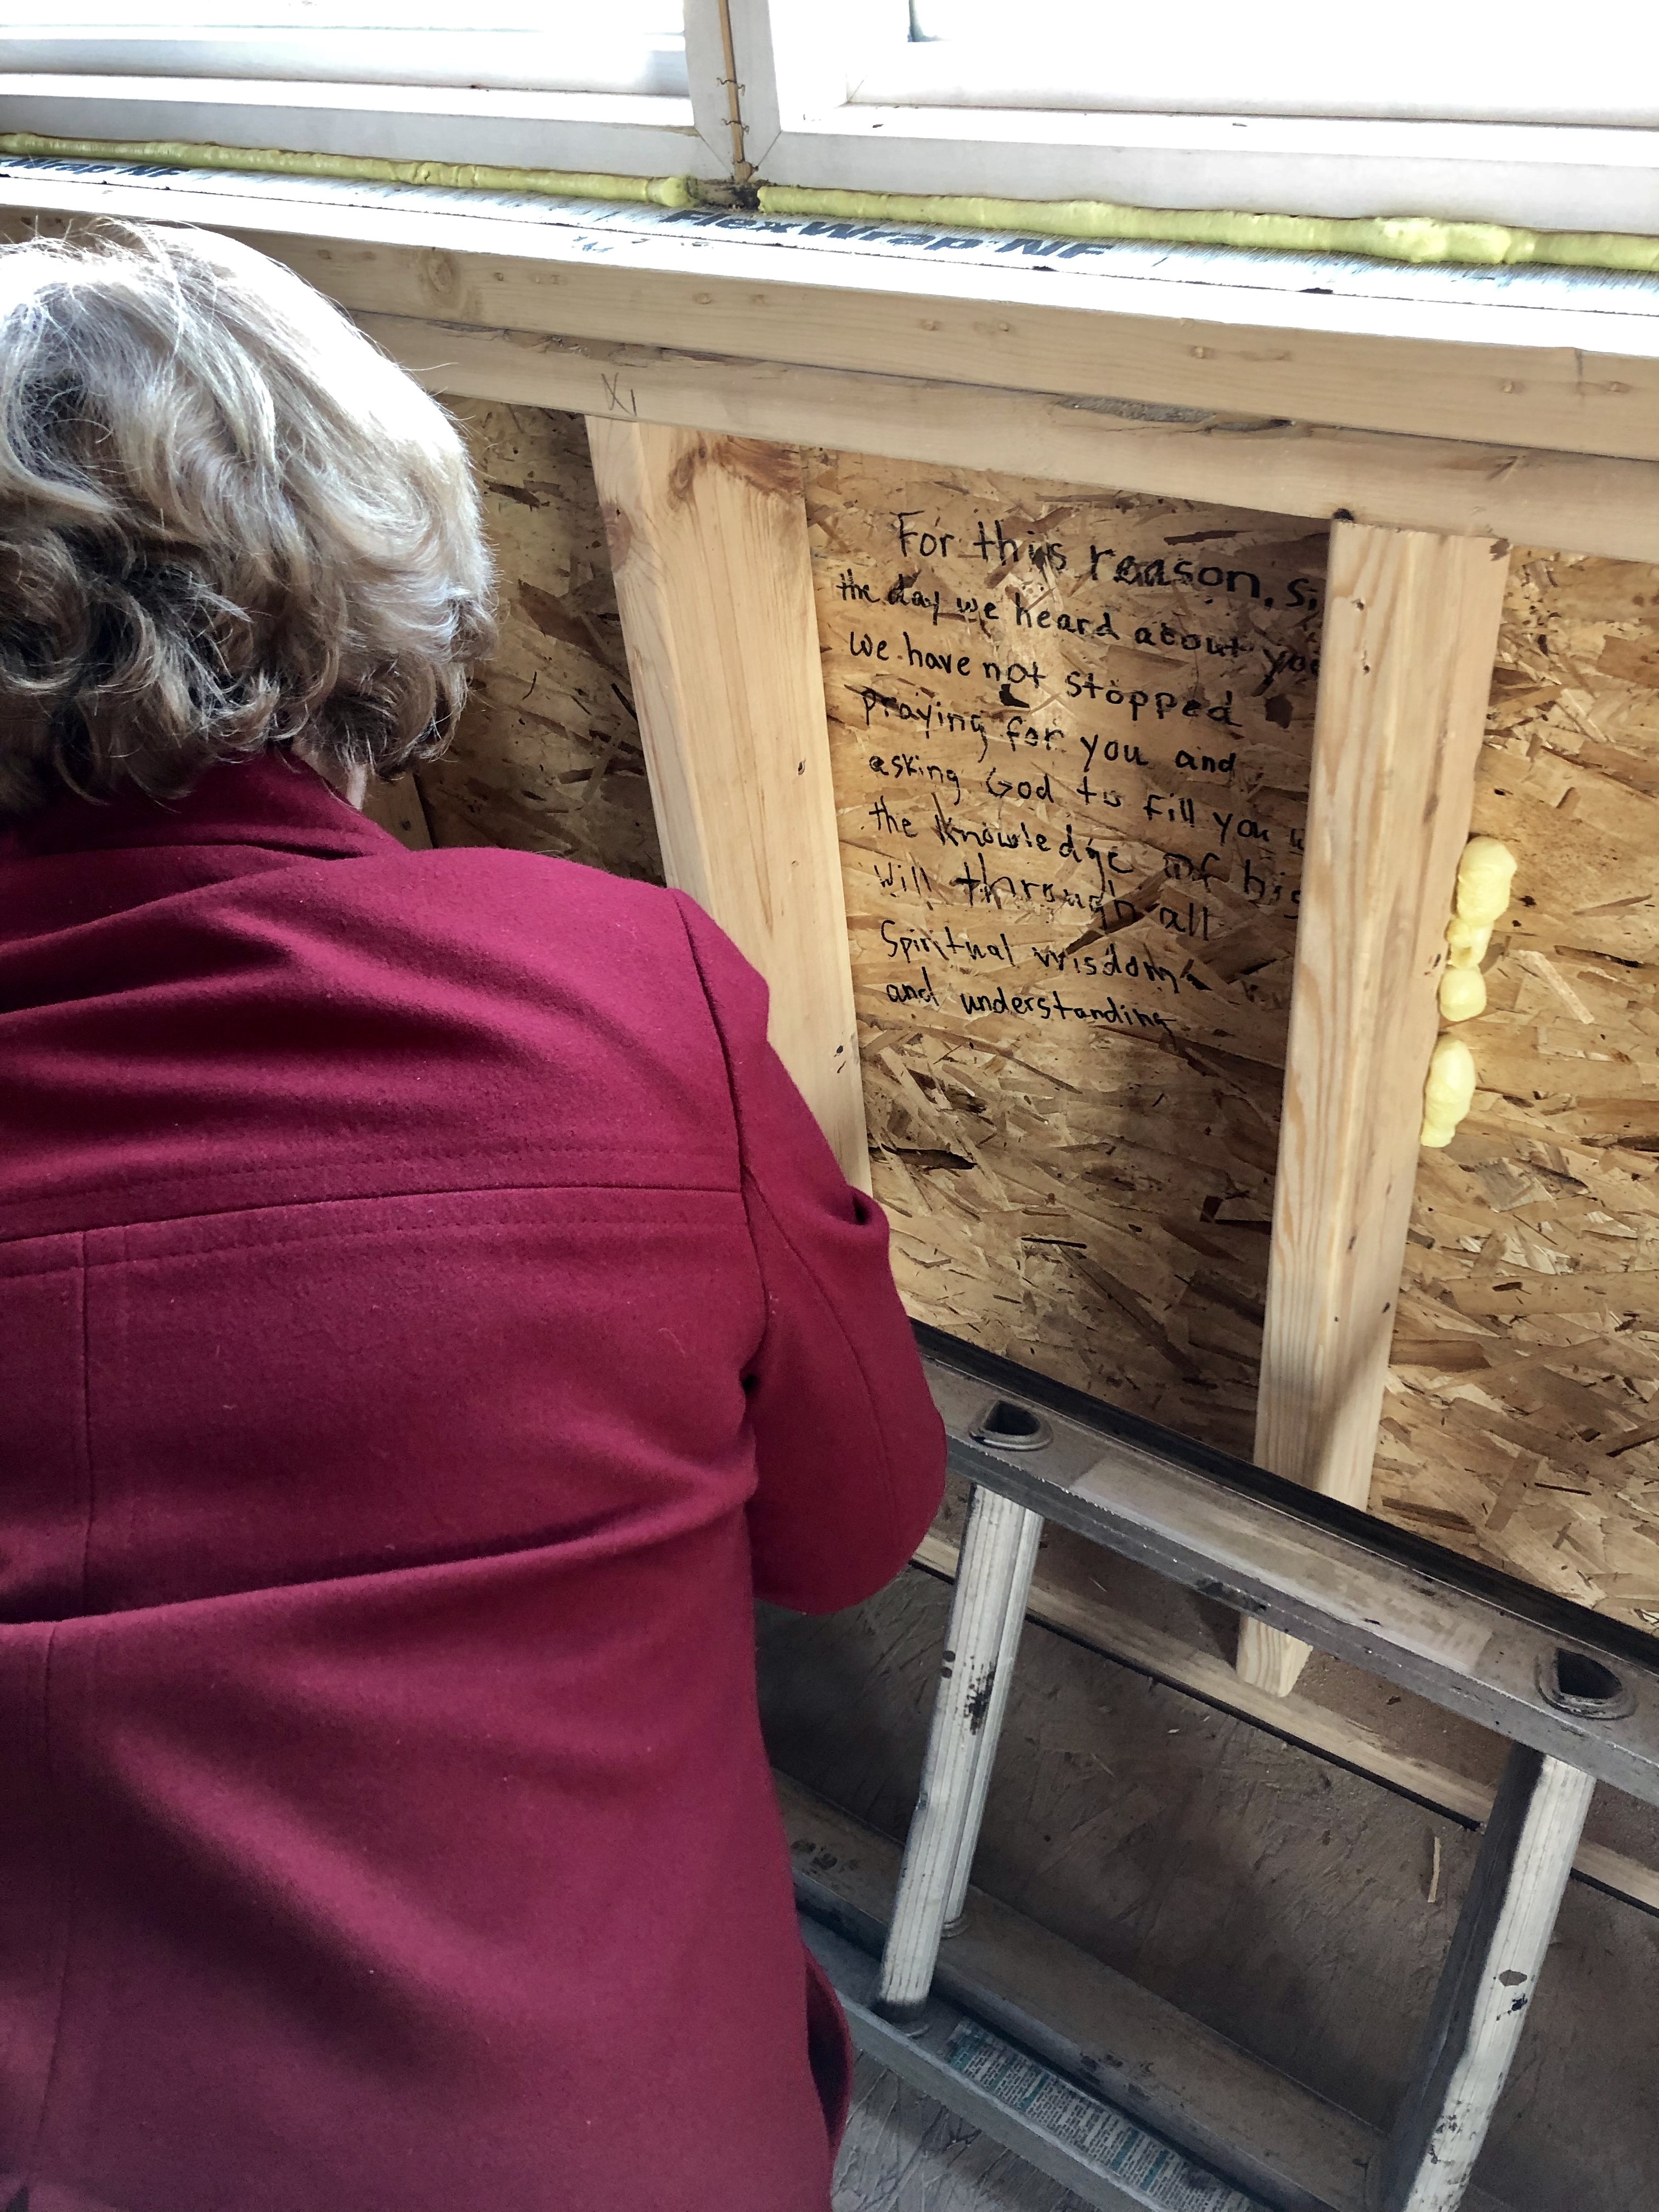 Wrap NF
FlexWrap NF
X1
For this reason, si
the day we heard about you
we have not stopped
praying for you and
asking God to fill you w
the knowledge of his
will through all
Spiritual wisdom
and understanding